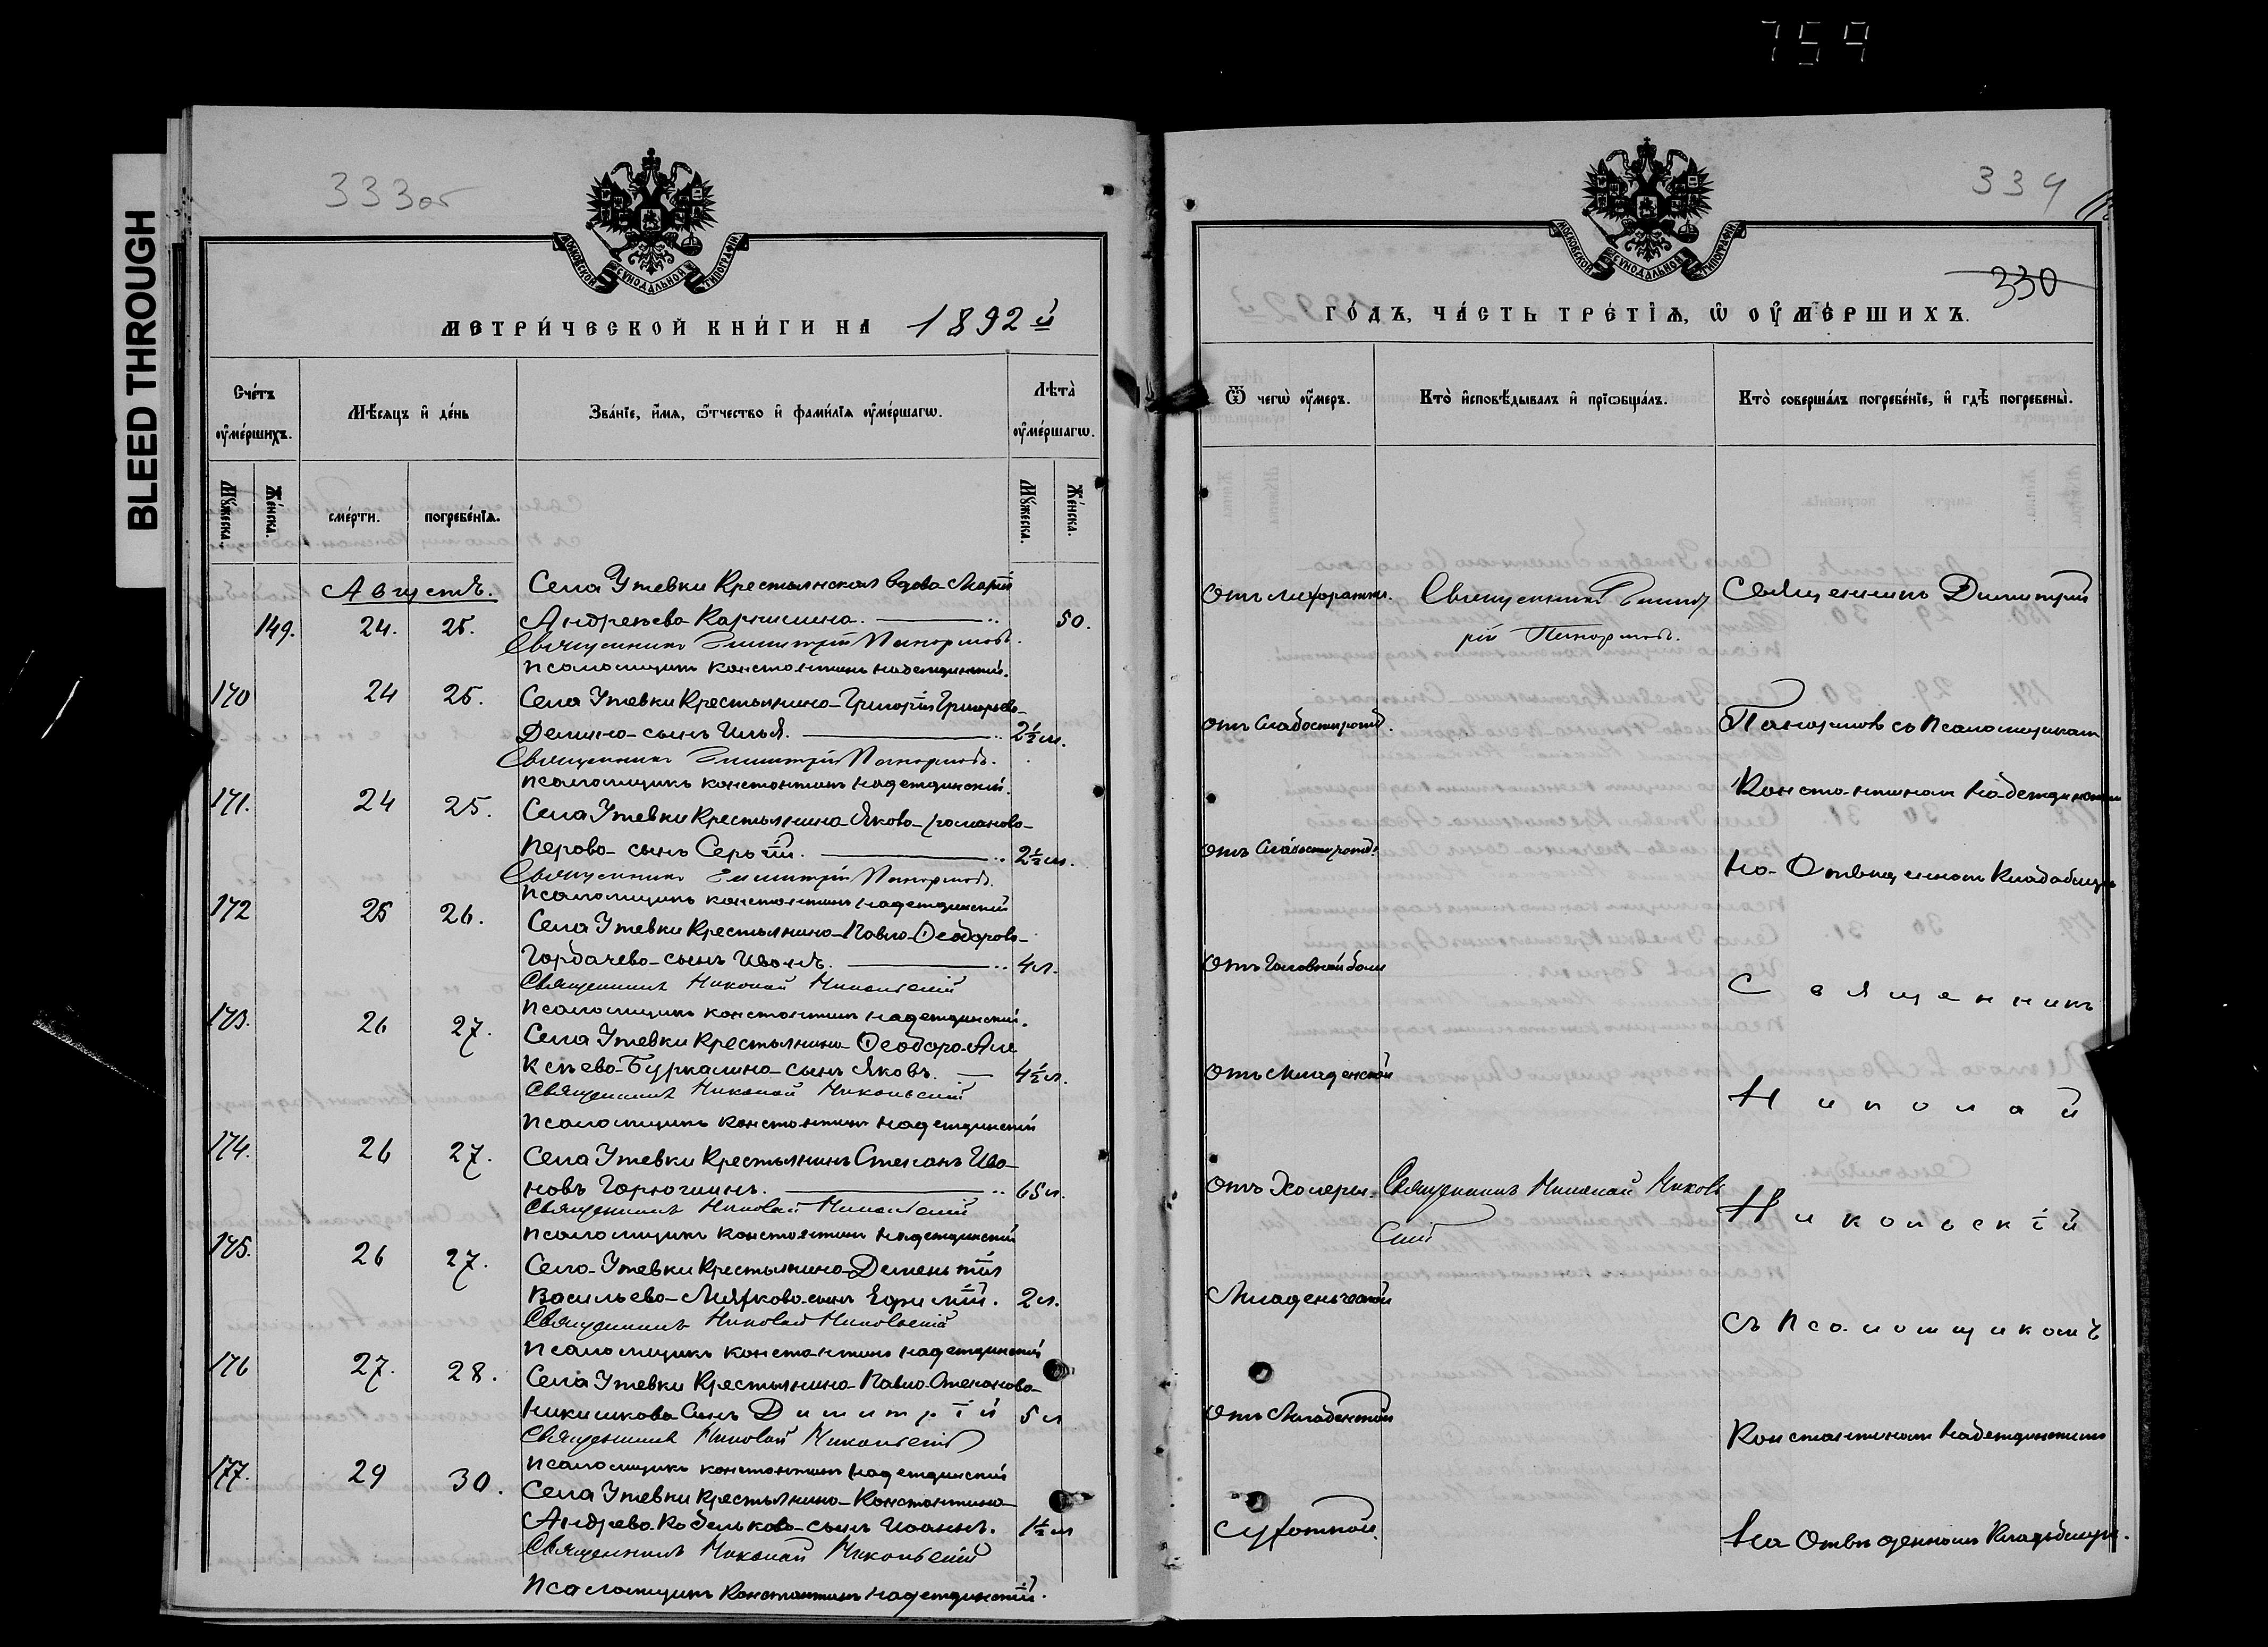 759
BLEED THROUGH
333об
МОСКОВСКОЙ СѴНОДАЛЬНОЙ ТИПОГРАФІИ
МЕТРИ́ЧЕСКОЙ КНИ́ГИ НА 1892й
Сче́тъ ᲂу҆ме́ршихъ.
Мѣ́сяцъ и҆ де́нь
Зва́нїе, и҆́мѧ, ѻ҆́тчество и҆ фами́лїѧ ᲂу҆ме́ршагѡ.
Лѣта̀ ᲂу҆ме́ршагѡ.
Мꙋ́жеска.
Же́нска.
сме́рти.
погребе́нїѧ.
Мꙋ́жеска.
Же́нска.
Августъ.
Села Утевки Крестьянская вдова Марія
149. 24. 25. Андреева Карпишина. 50.
Священникъ Димитрій Панормовъ.
Псаломщикъ Константинъ Надеждинскій.
170 24 25. Села Утевки Крестьянина Григорія Григорьева
Демина сынъ Илья. 2½ м.
Священникъ Димитрій Панормовъ.
Псаломщикъ Константинъ Надеждинскій.
171. 24 25. Села Утевки Крестьянина Якова Романова
Перова сынъ Сергій. 2½ м.
Священникъ Димитрій Панормовъ.
Псаломщикъ Константинъ Надеждинскій
172 25 26. Села Утевки Крестьянина Павла Ѳеодорова
Горбачева сынъ Иванъ. 4 л.
Священникъ Николай Никольскій
Псаломщикъ Константинъ Надеждинскій.
173. 26 27. Села Утевки Крестьянина Ѳеодора Але
ксѣева Буркалина сынъ Яковъ. 4½ л.
Священникъ Николай Никольскій
Псаломщикъ Константинъ Надеждинскій
174. 26 27. Села Утевки Крестьянинъ Степанъ Ива
новъ Горюшинъ. 65 л.
Священникъ Николай Никольскій
Псаломщикъ Константинъ Надеждинскій
175. 26 27. Села Утевки Крестьянина Дементія
Васильева сынъ Ефимій. 2 л.
Священникъ Николай Никольскій
Псаломщикъ Константинъ Надеждинскій
176 27. 28. Села Утевки Крестьянина Павла Степанова
Никишкова Сынъ Димитрій 5 л
Священникъ Николай Никольскій
Псаломщикъ Константинъ Надеждинскій
177. 29 30. Села Утевки Крестьянина Константина
Андрева Кобелькова сынъ Иоаннъ. 1½ м
Священникъ Николай Никольскій
Псаломщикъ Константинъ Надеждинскій.
334
330
МОСКОВСКОЙ СѴНОДАЛЬНОЙ ТИПОГРАФІИ
ГО́ДЪ, ЧА́СТЬ ТРЕ́ТЇѦ, Ѡ҆ ОУ҆МЕ́РШИХЪ.
Ѿ чегѡ̀ ᲂу҆́меръ.
Кто̀ и҆сповѣ́дывалъ и҆ прїѡбща́лъ.
Кто̀ соверша́лъ погребе́нїе, и҆ гдѣ̀ погребены̀.
отъ лихорадки. Священникъ Димит
рій Панормовъ.
Священникъ Димитрій
отъ слабости рожд.
Панормовъ съ Псаломщикомъ
Константиномъ Надеждинскимъ
отъ слабости рожд.
на Отведенномъ Кладбищѣ
отъ Головной боли
Священникъ
отъ Младенской
Николай
отъ Холеры. Священникъ Николай Николь
скій
Никольскій
Младенческой
съ Псаломщикомъ
отъ Младенской
Константиномъ Надеждинскимъ
сухоткой.
На Отведенномъ Кладбищѣ.